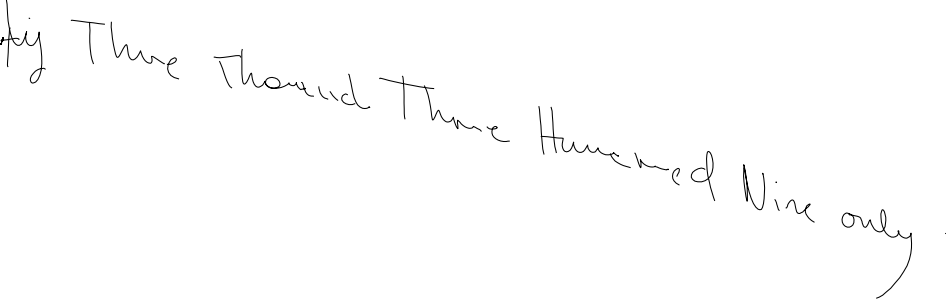 Three Thousand Three Hundred Nine only.